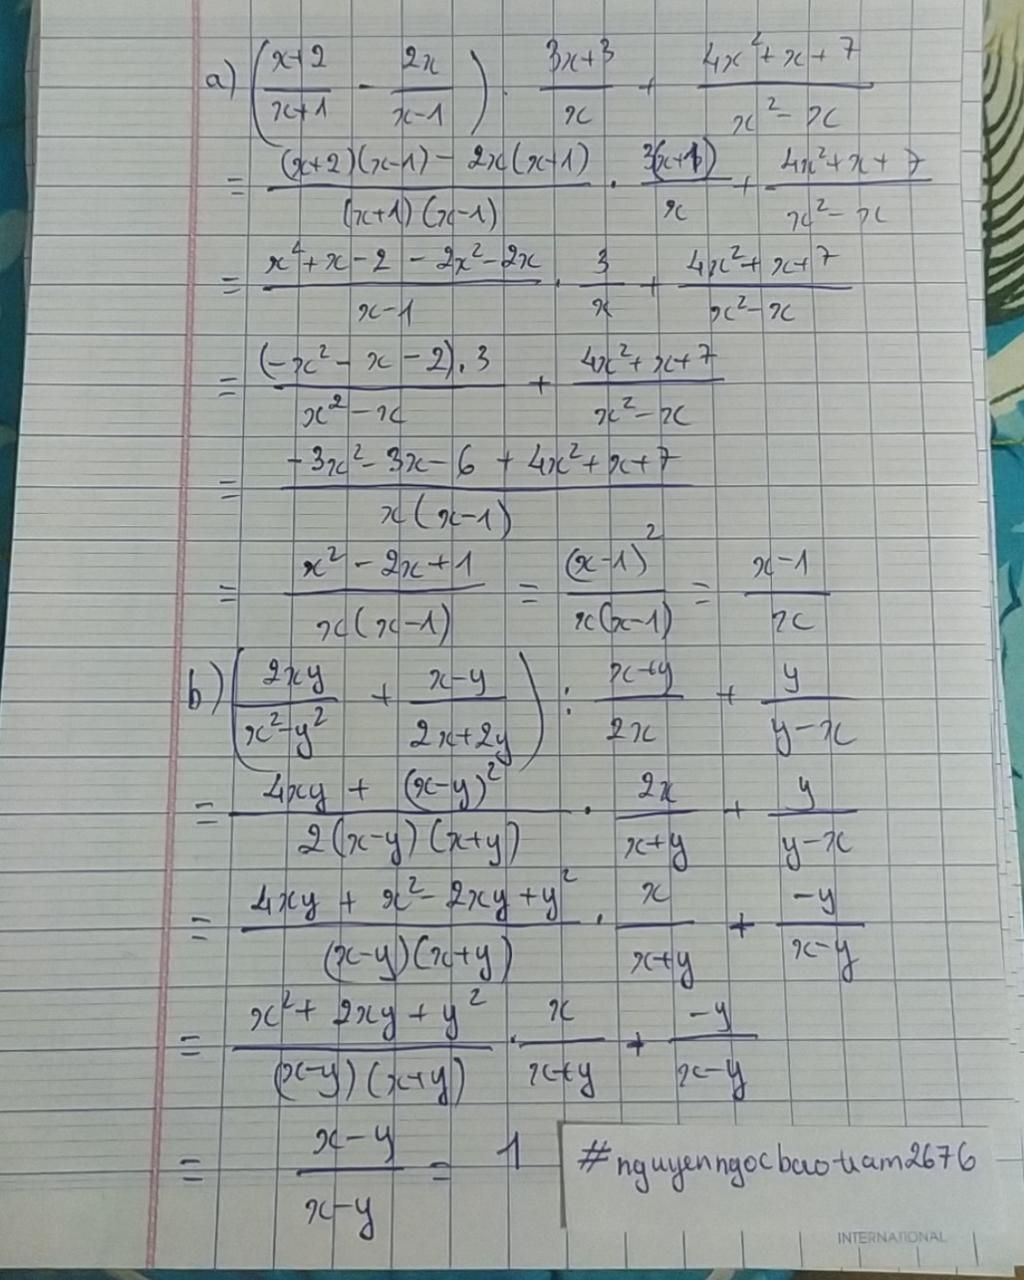 a) ((x+2)/(x+1) - 2x/(x-1)) . (3x+3)/x + (4x²+x+7)/(x²-x)
= ((x+2)(x-1) - 2x(x+1))/((x+1)(x-1)) . 3(x+1)/x + (4x²+x+7)/(x²-x)
= (x⁴+x-2-2x²-2x)/(x-1) . 3/x + (4x²+x+7)/(x²-x)
= ((-x²-x-2).3)/(x²-x) + (4x²+x+7)/(x²-x)
= (-3x²-3x-6+4x²+x+7)/(x(x-1))
= (x²-2x+1)/(x(x-1)) = (x-1)²/(x(x-1)) = (x-1)/x
b) (2xy/(x²-y²) + (x-y)/(2x+2y)) : (x+y)/2x + y/(y-x)
= (4xy+(x-y)²)/(2(x-y)(x+y)) . 2x/(x+y) + y/(y-x)
= (4xy+x²-2xy+y²)/((x-y)(x+y)) . x/(x+y) + -y/(x-y)
= (x²+2xy+y²)/((x-y)(x+y)) . x/(x+y) + -y/(x-y)
= (x-y)/(x-y) = 1
#nguyenngocbaotram2676
INTERNATIONAL